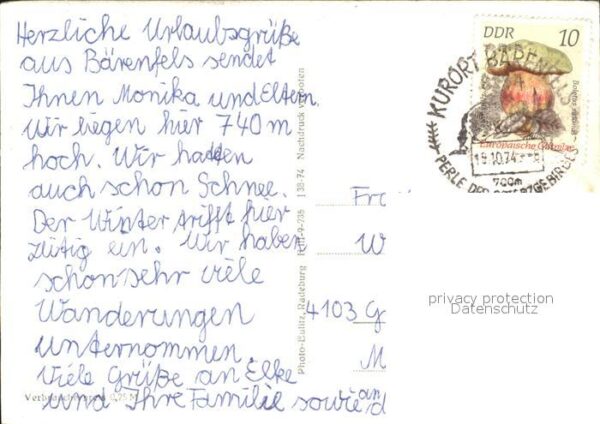 Herzliche Urlaubsgrüße
aus Bärenfels sendet
Ihnen Monika und Eltern.
Wir liegen hier 740 m
hoch. Wir hatten
auch schon Schnee.
Der Winter trifft hier
zeitig ein. Wir haben
schon sehr viele
Wanderungen
unternommen.
Viele Grüße an Elke
und Ihre Familie sowie
an
Verbraucherpreis 0,25 M
Photo-Bulitz, Radeburg III-9-235 138-74 Nachdruck verboten
DDR 10
Europäische Giftpilze
KURORT BÄRENFELS
19.10.74
700m
PERLE DES OSTERZGEBIRGES
Frä
W
4103 G
M
privacy protection
Datenschutz